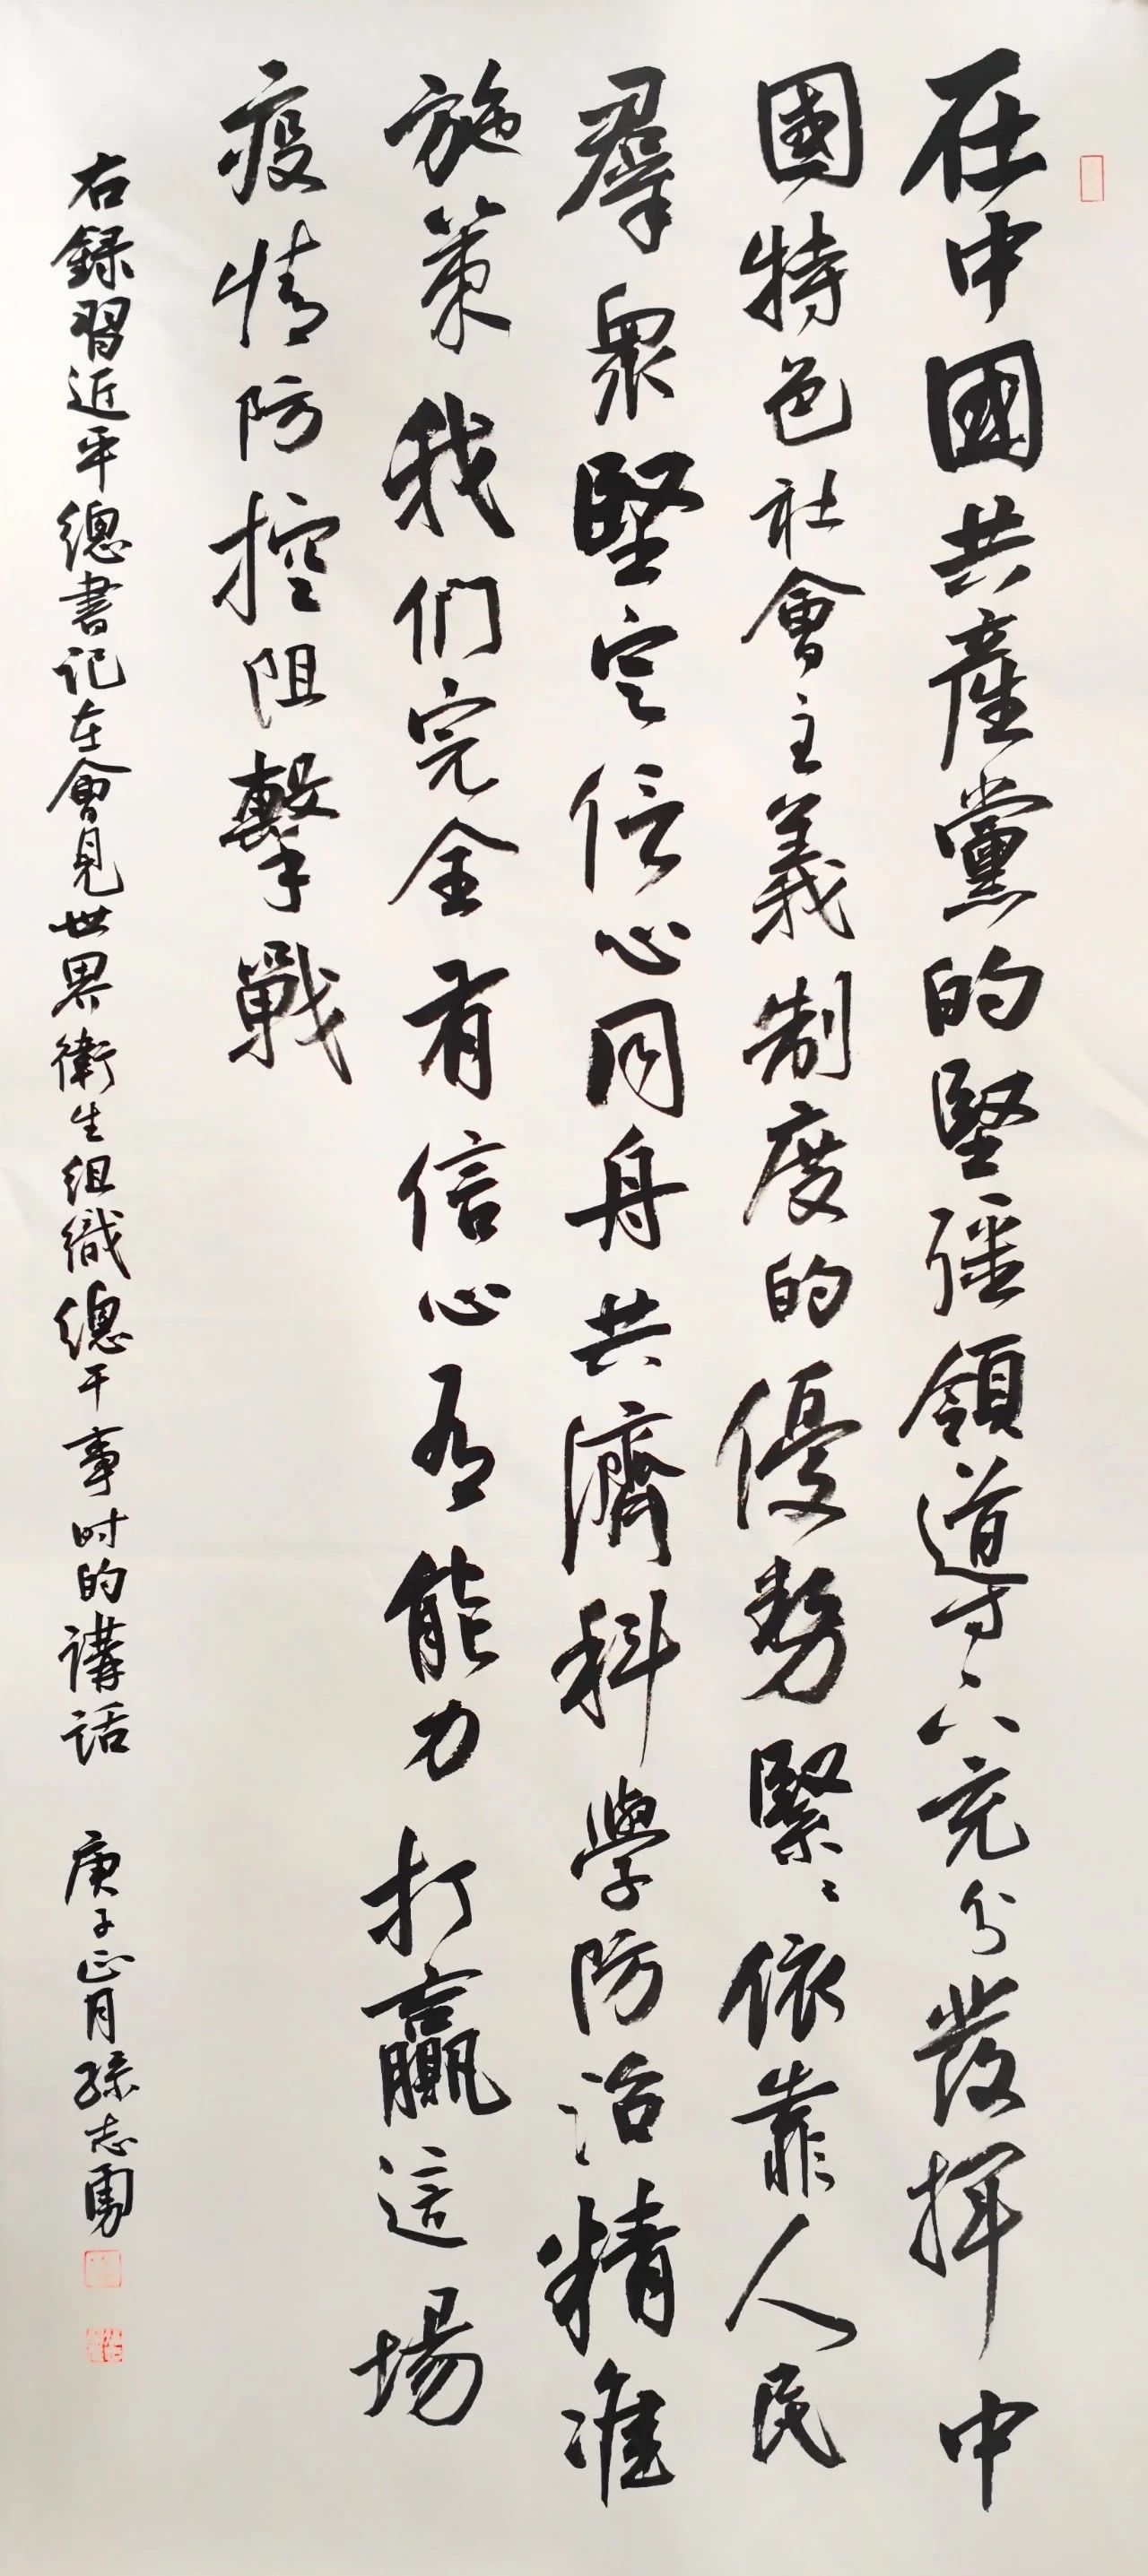 在中國共產黨的堅彊領導下充分發揮中
國特色社會主義制度的優勢緊緊依靠人民
羣衆堅定信心同舟共濟科學防治精准
施策我们完全有信心有能力打贏這場
疫情防控阻擊戰
右録習近平總書记在會見世界衛生組織總干事时的講話 庚子正月孫志勇